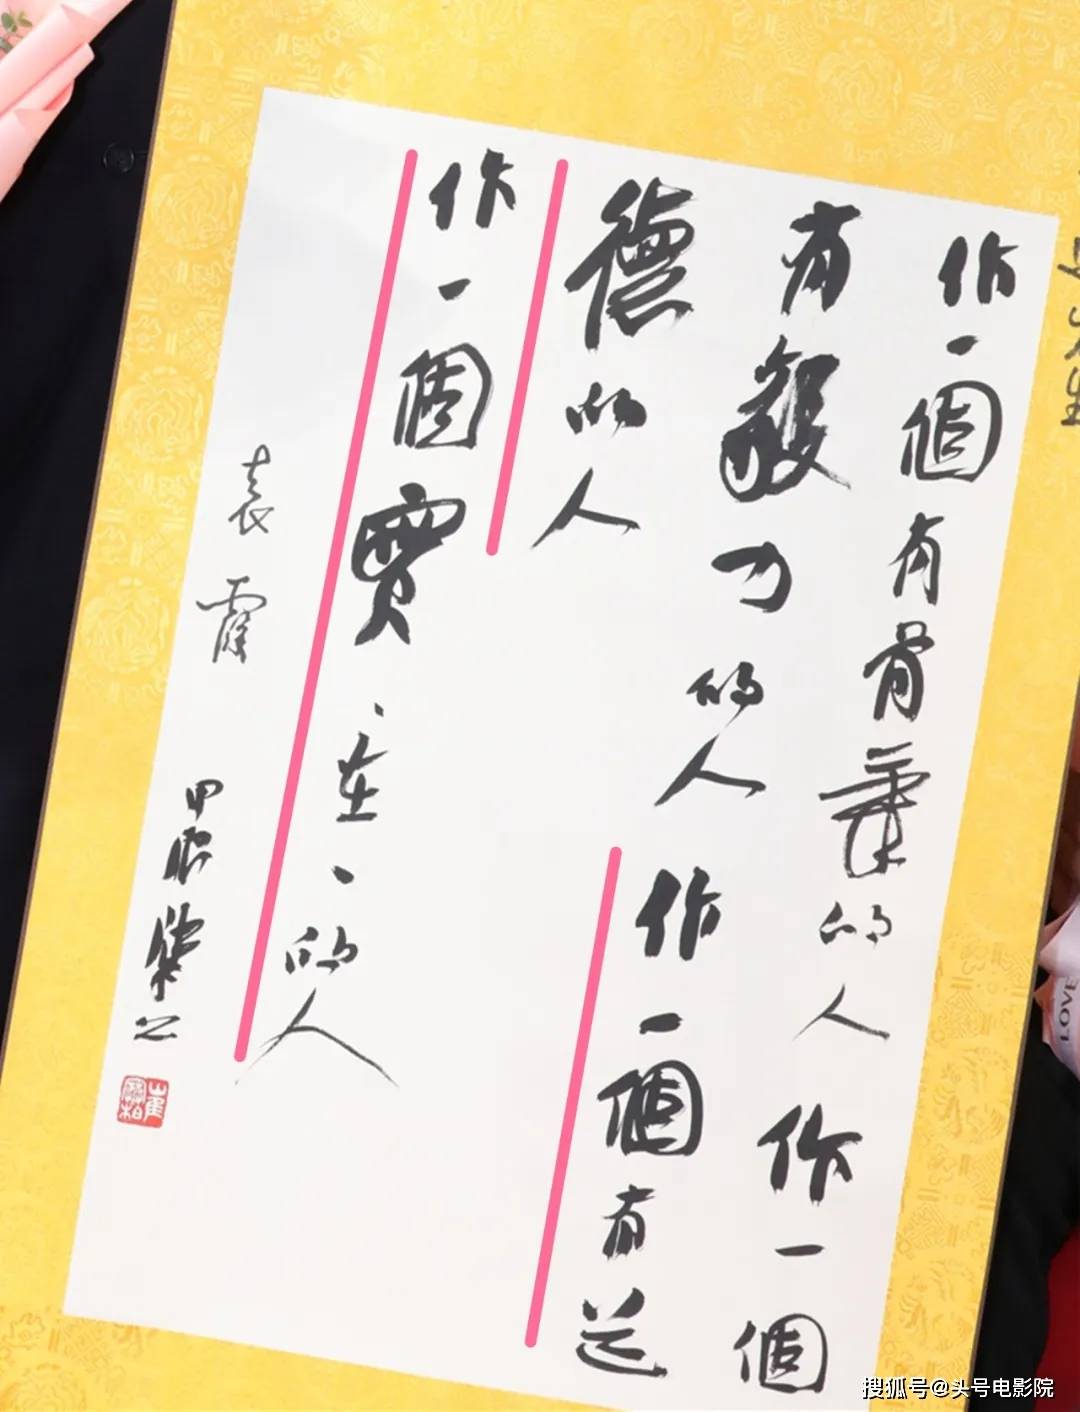 作一個有骨氣的人作一個
有毅力的人作一個有道
德的人
作一個實、在、的人
袁霞
甲辰
先生
LOVE
搜狐号@头号电影院